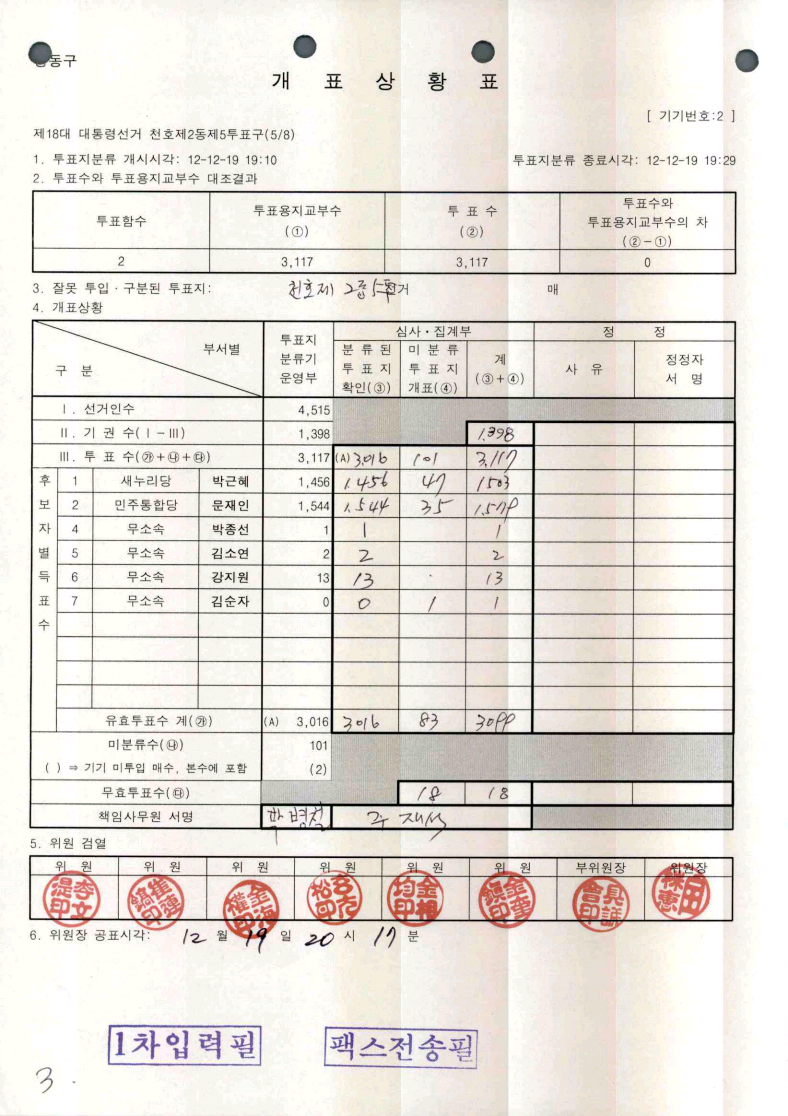 동구
개 표 상 황 표
[ 기기번호:2 ]
제18대 대통령선거 천호제2동제5투표구(5/8)
1. 투표지분류 개시시각: 12-12-19 19:10 투표지분류 종료시각: 12-12-19 19:29
2. 투표수와 투표용지교부수 대조결과
투표함수 투표용지교부수 (①) 투 표 수 (②) 투표수와 투표용지교부수의 차 (②-①)
2 3,117 3,117 0
3. 잘못 투입·구분된 투표지: 매
4. 개표상황
구 분 부서별 투표지 분류기 운영부 심사·집계부 정 정
분 류 된 투 표 지 확인(③) 미 분 류 투 표 지 개표(④) 계 (③+④) 사 유 정정자 서 명
Ⅰ. 선거인수 4,515
Ⅱ. 기 권 수(Ⅰ-Ⅲ) 1,398 1,398
Ⅲ. 투 표 수(㉮+㉯+㉰) 3,117 (A) 3,016 101 3,117
후보자별득표수
1 새누리당 박근혜 1,456 1,456 47 1503
2 민주통합당 문재인 1,544 1,544 35 1,579
4 무소속 박종선 1 1 1
5 무소속 김소연 2 2 2
6 무소속 강지원 13 13 · 13
7 무소속 김순자 0 0 1 1
유효투표수 계(㉮) (A) 3,016 3016 83 3099
미분류수(㉯) 101
( ) ⇒ 기기 미투입 매수, 본수에 포함 (2)
무효투표수(㉰) 18 18
책임사무원 서명
5. 위원 검열
위 원 위 원 위 원 위 원 위 원 위 원 부위원장 위원장
6. 위원장 공표시각: 12 월 19 일 20 시 17 분
1차입력필 팩스전송필
3